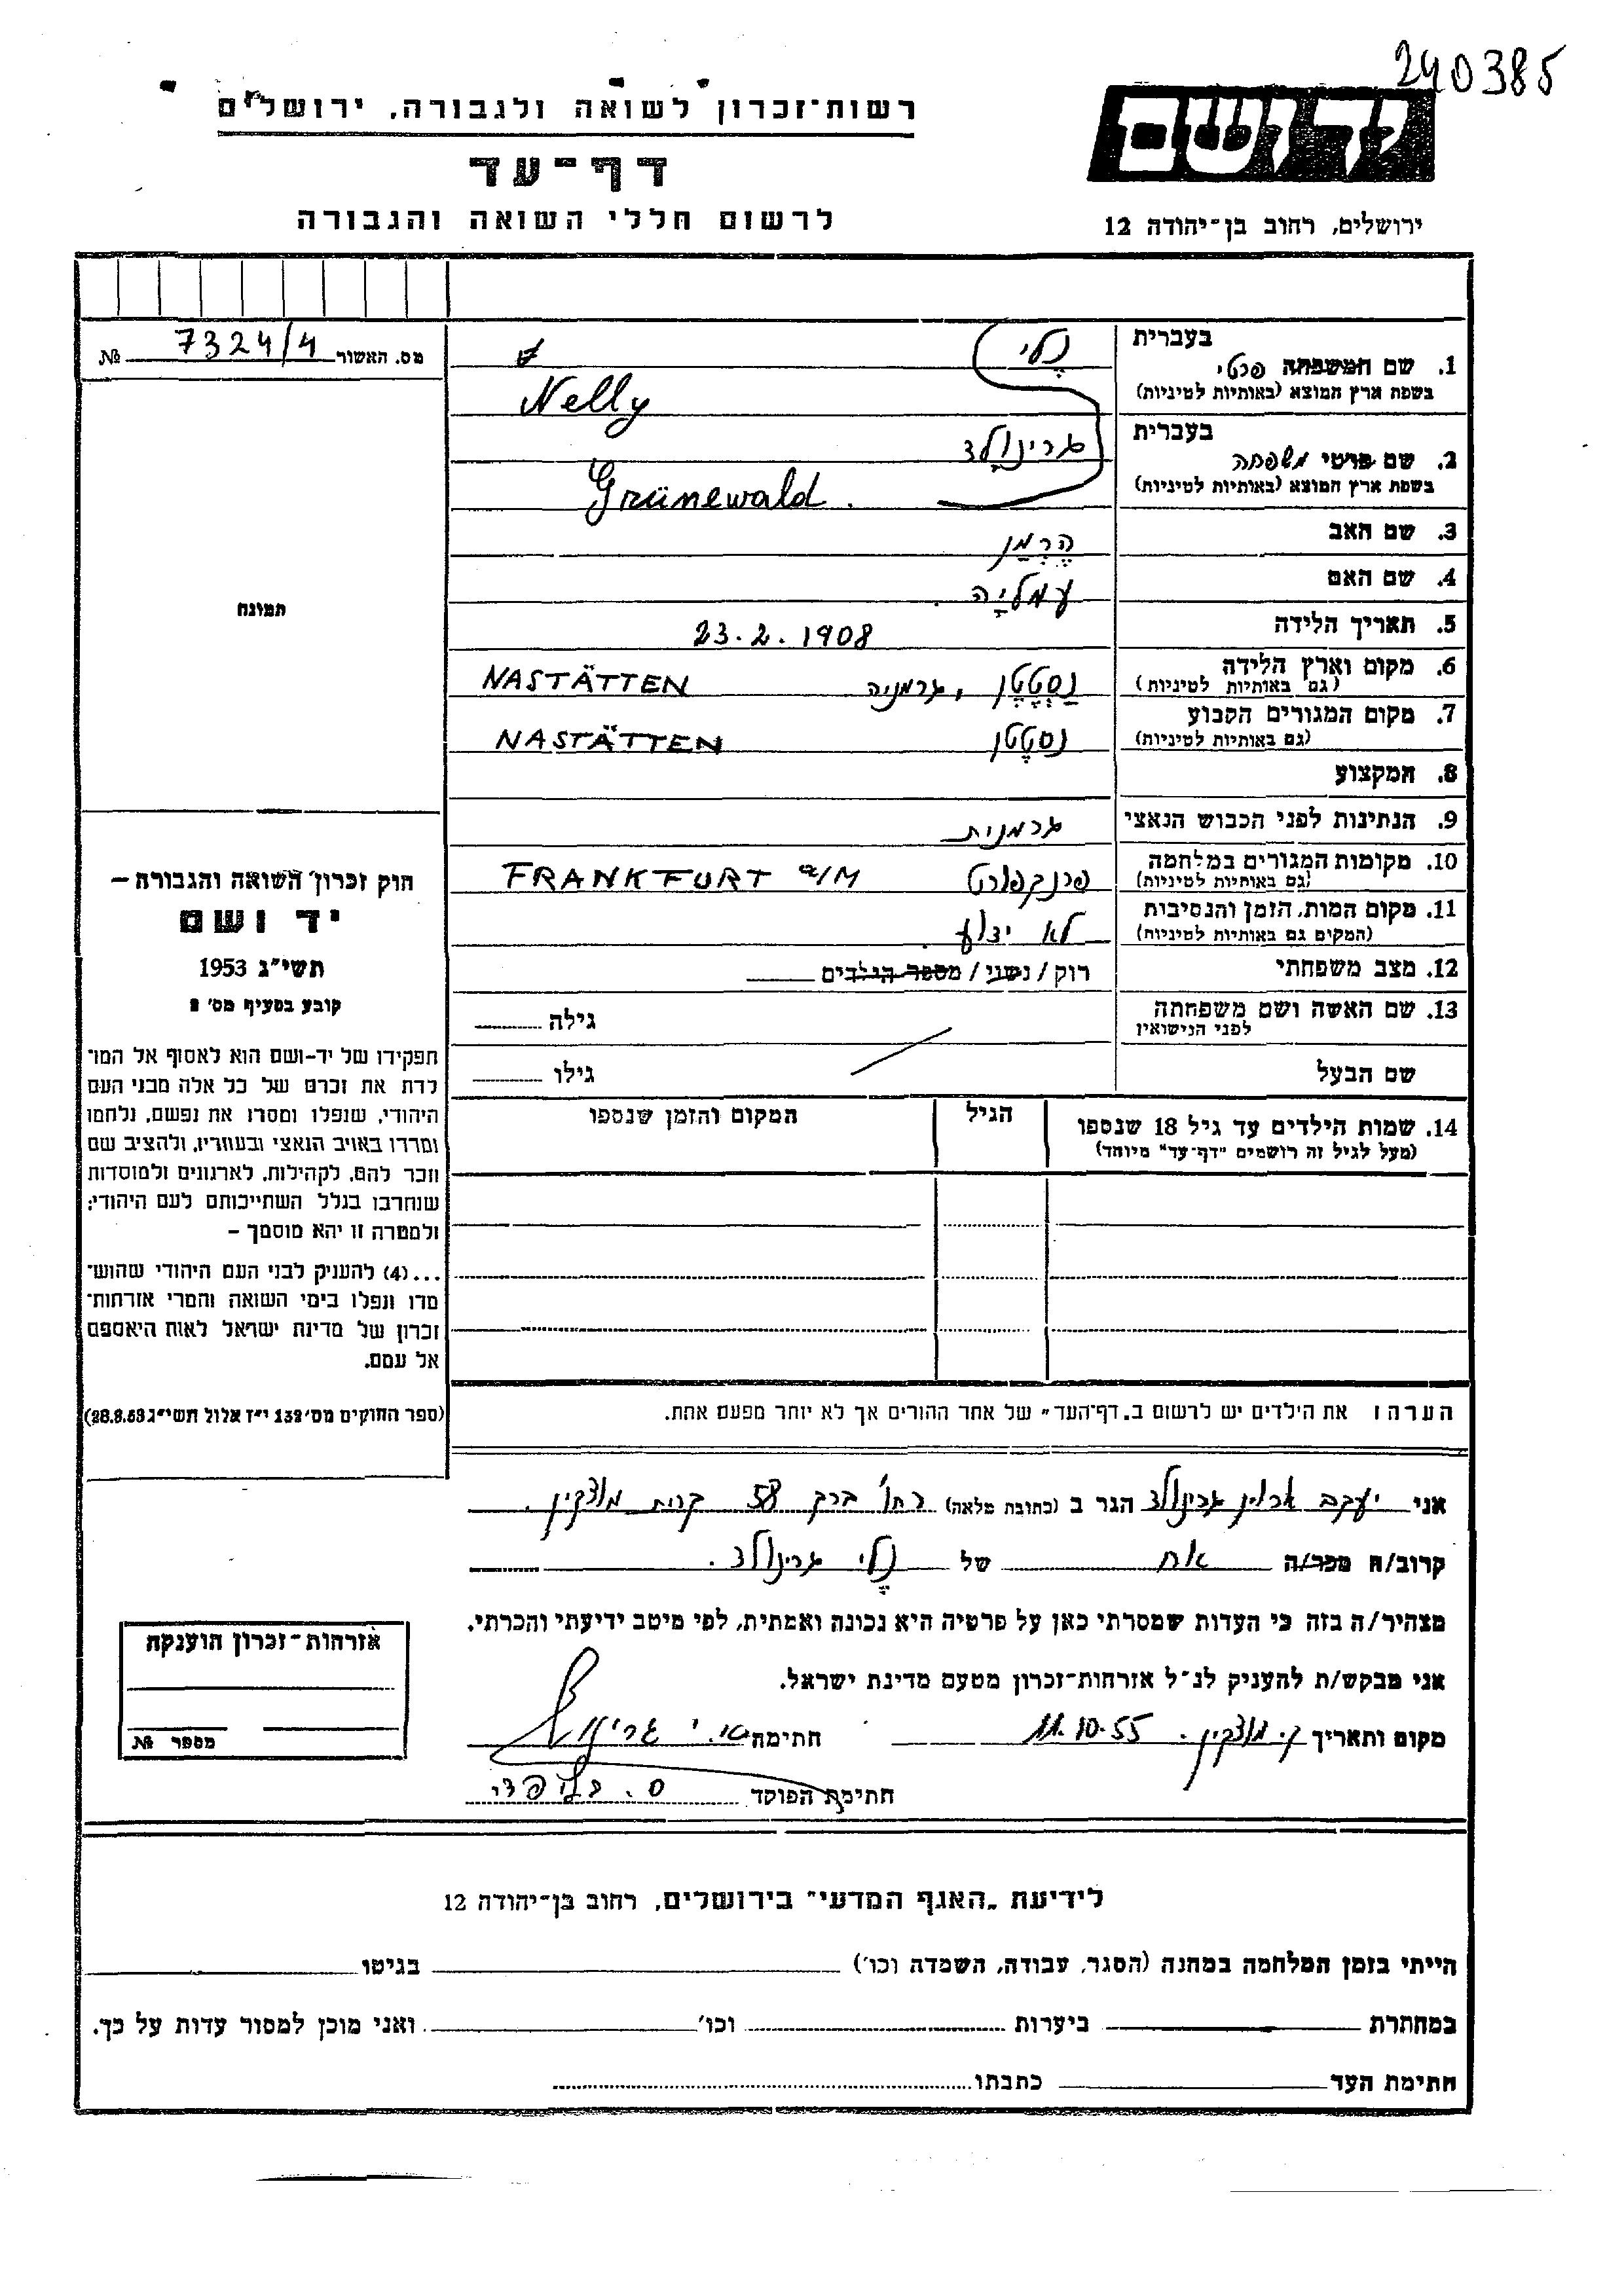 240385
יד ושם
רשות־זכרון לשואה ולגבורה, ירושלים
דף־עד
לרשום חללי השואה והגבורה
ירושלים, רחוב בן־יהודה 12
מס. האשור 7324/4 №
תמונה
בעברית נלי
1. שם המשפחה פרטי
בשפת ארץ המוצא (באותיות לטיניות) Nelly
בעברית גרינולד
2. שם פרטי משפחה
בשפת ארץ המוצא (באותיות לטיניות) Grünewald.
3. שם האב הֶרְמַן
4. שם האם עמליָה.
5. תאריך הלידה 23.2.1908
6. מקום וארץ הלידה נַסְטֶטֶן, גרמניה NASTÄTTEN
(גם באותיות לטיניות)
7. מקום המגורים הקבוע נסטֶטן NASTÄTTEN
(גם באותיות לטיניות)
8. המקצוע
9. הנתינות לפני הכבוש הנאצי גרמנית
10. מקומות המגורים במלחמה פרנקפורט FRANKFURT a/M
(גם באותיות לטיניות)
11. מקום המות, הזמן והנסיבות לא ידוע.
(המקום גם באותיות לטיניות)
12. מצב משפחתי רוק/נשוי/מספר הילדים
13. שם האשה ושם משפחתה גילה
לפני הנישואין
שם הבעל גילו
14. שמות הילדים עד גיל 18 שנספו הגיל המקום והזמן שנספו
(מעל לגיל זה רושמים "דף־עד" מיוחד)
הערה: את הילדים יש לרשום ב„דף־העד" של אחד ההורים אך לא יותר מפעם אחת.
חוק זכרון השואה והגבורה –
יד ושם
תשי"ג 1953
קובע בסעיף מס' 2
תפקידו של יד-ושם הוא לאסוף אל המו־
לדת את זכרם של כל אלה מבני העם
היהודי, שנפלו ומסרו את נפשם, נלחמו
ומרדו באויב הנאצי ובעוזריו, ולהציב שם
וזכר להם, לקהילות, לארגונים ולמוסדות
שנחרבו בגלל השתייכותם לעם היהודי;
ולמטרה זו יהא מוסמך –
...(4) להעניק לבני העם היהודי שהוש־
מדו ונפלו בימי השואה והמרי אזרחות־
זכרון של מדינת ישראל לאות היאספם
אל עמם.
(ספר החוקים מס' 132 י"ז אלול תשי"ג 28.8.53)
אני יעקב ארוין גרינולד הגר ב (כתובת מלאה) רחו' ברק 58 קרית מוצקין.
קרוב/ה מכר/ה אח של נֶלי גרינולד.
מצהיר/ה בזה כי העדות שמסרתי כאן על פרטיה היא נכונה ואמתית, לפי מיטב ידיעתי והכרתי.
אני מבקש/ת להעניק לנ"ל אזרחות־זכרון מטעם מדינת ישראל.
מקום ותאריך ק. מוצקין. 11.10.55 חתימה
חתימת הפוקד
אזרחות־זכרון הוענקה
מספר №
לידיעת „האגף המדעי" בירושלים, רחוב בן־יהודה 12
הייתי בזמן המלחמה במחנה (הסגר, עבודה, השמדה וכו') בגיטו
במחתרת ביערות וכו' ואני מוכן למסור עדות על כך.
חתימת העד כתבתו